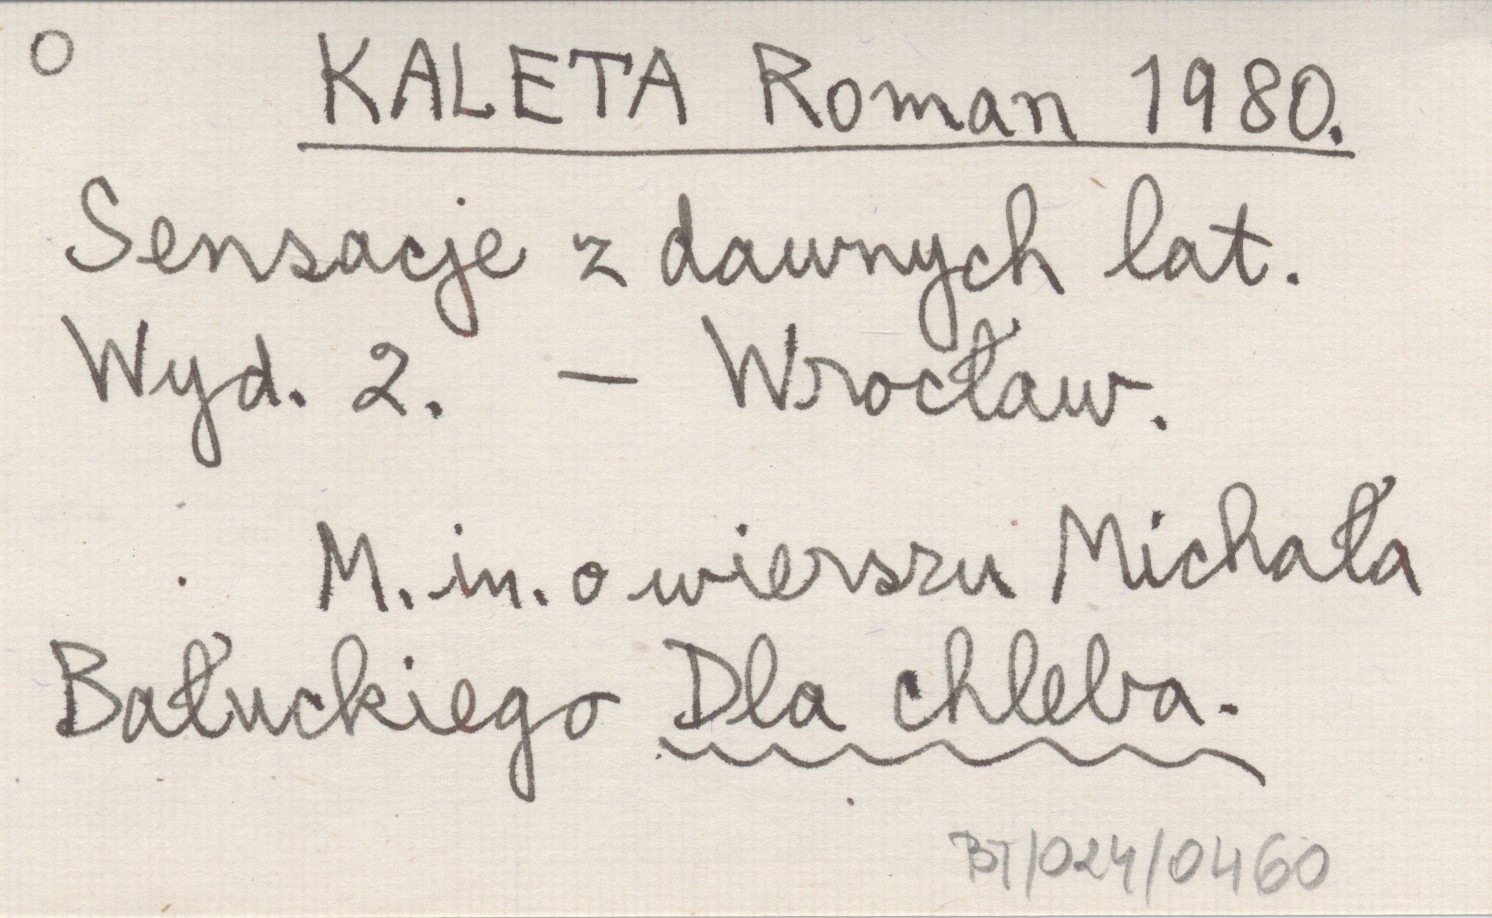 O
KALETA Roman 1980.
Sensacje z dawnych lat.
Wyd. 2. — Wrocław.
M. in. o wierszu Michała
Bałuckiego Dla chleba.
BT/024/0460